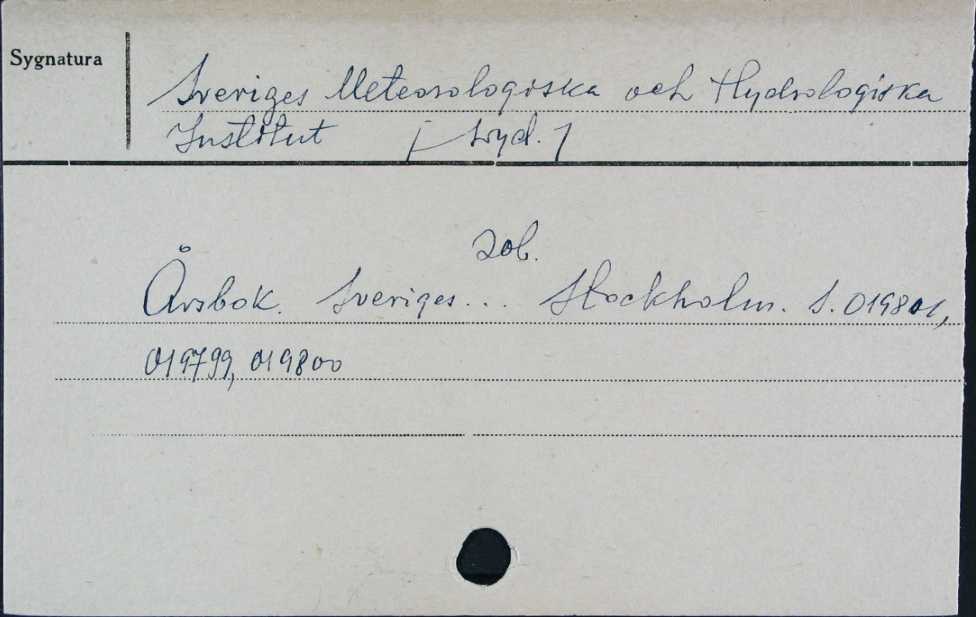 Sygnatura
Sveriges Meteorologiska och Hydrologiska
Institut [wyd.]
zob.
Årsbok. Sveriges... Stockholm. S. 019801,
019799, 019800